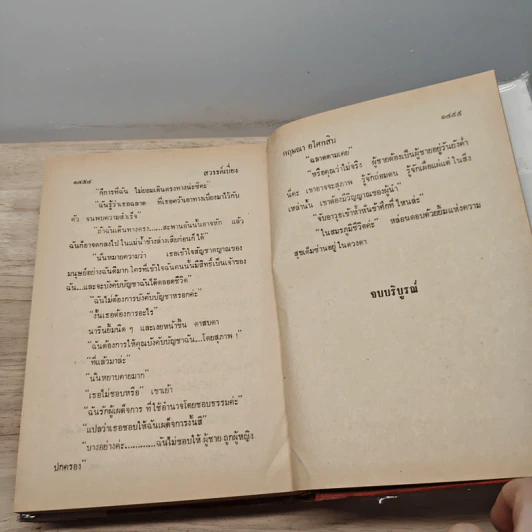 ๑๔๕๔
สวรรค์เบี่ยง
"ก็การที่ฉัน ไม่ยอมเดินตรงทางน่ะซิคะ"
"ฉันรู้ว่าเธอฉลาด ที่เธอคว้าเอาทางเบี่ยงมาไว้กับ
ตัว จนพบความสำเร็จ"
"ถ้าฉันเดินทางตรง.....สะพานอันนั้นอาจหัก แล้ว
ฉันก็อาจตกลงไป ในแม่น้ำข้างล่างเสียก่อนก็ได้"
"นั่นหมายความว่า เธอเข้าใจสัญชาตญาณของ
มนุษย์อย่างฉันดีมาก ใครที่เข้าใจฉันคนนั้นมีสิทธิ์เป็นเจ้าของ
ฉัน...และจะบังคับบัญชาฉันได้ตลอดชีวิต"
"ฉันไม่ต้องการบังคับบัญชาหรอกค่ะ"
"งั้นเธอต้องการอะไร"
นารินยิ้มนิด ๆ และเงยหน้าขึ้น ตาสบตา
"ฉันต้องการให้คุณบังคับบัญชาฉัน...โดยสุภาพ !"
"ที่แล้วมาล่ะ"
"นั่นหยาบคายมาก"
"เธอไม่ชอบหรือ" เขาเย้า
"ฉันรักผู้เผด็จการ ที่ใช้อำนาจโดยชอบธรรมค่ะ"
"แปลว่าเธอชอบให้ฉันเผด็จการงั้นสิ"
"บางอย่างค่ะ............ฉันไม่ชอบให้ ผู้ชาย ถูกผู้หญิง
ปกครอง"
๑๔๕๕
กฤษณา อโศกสิน
"ฉลาดตามเคย"
"หรือคุณว่าไม่จริง ผู้ชายต้องเป็นผู้ชายอยู่วันยังค่ำ
นี่คะ เขาอาจจะสุภาพ รู้จักถ่อมตน รู้จักเผื่อแผ่แต่ ในสิ่ง
เหล่านั้น เขาต้องมีวิญญาณของผู้นำ"
"จับอาวุธเข้าห้ำหั่นข้าศึกที่ ไหนล่ะ"
"ในสมรภูมิชีวิตค่ะ" หล่อนตอบด้วยยิ้มแห่งความ
สุขเต็มซ่านอยู่ ในดวงตา
จบบริบูรณ์